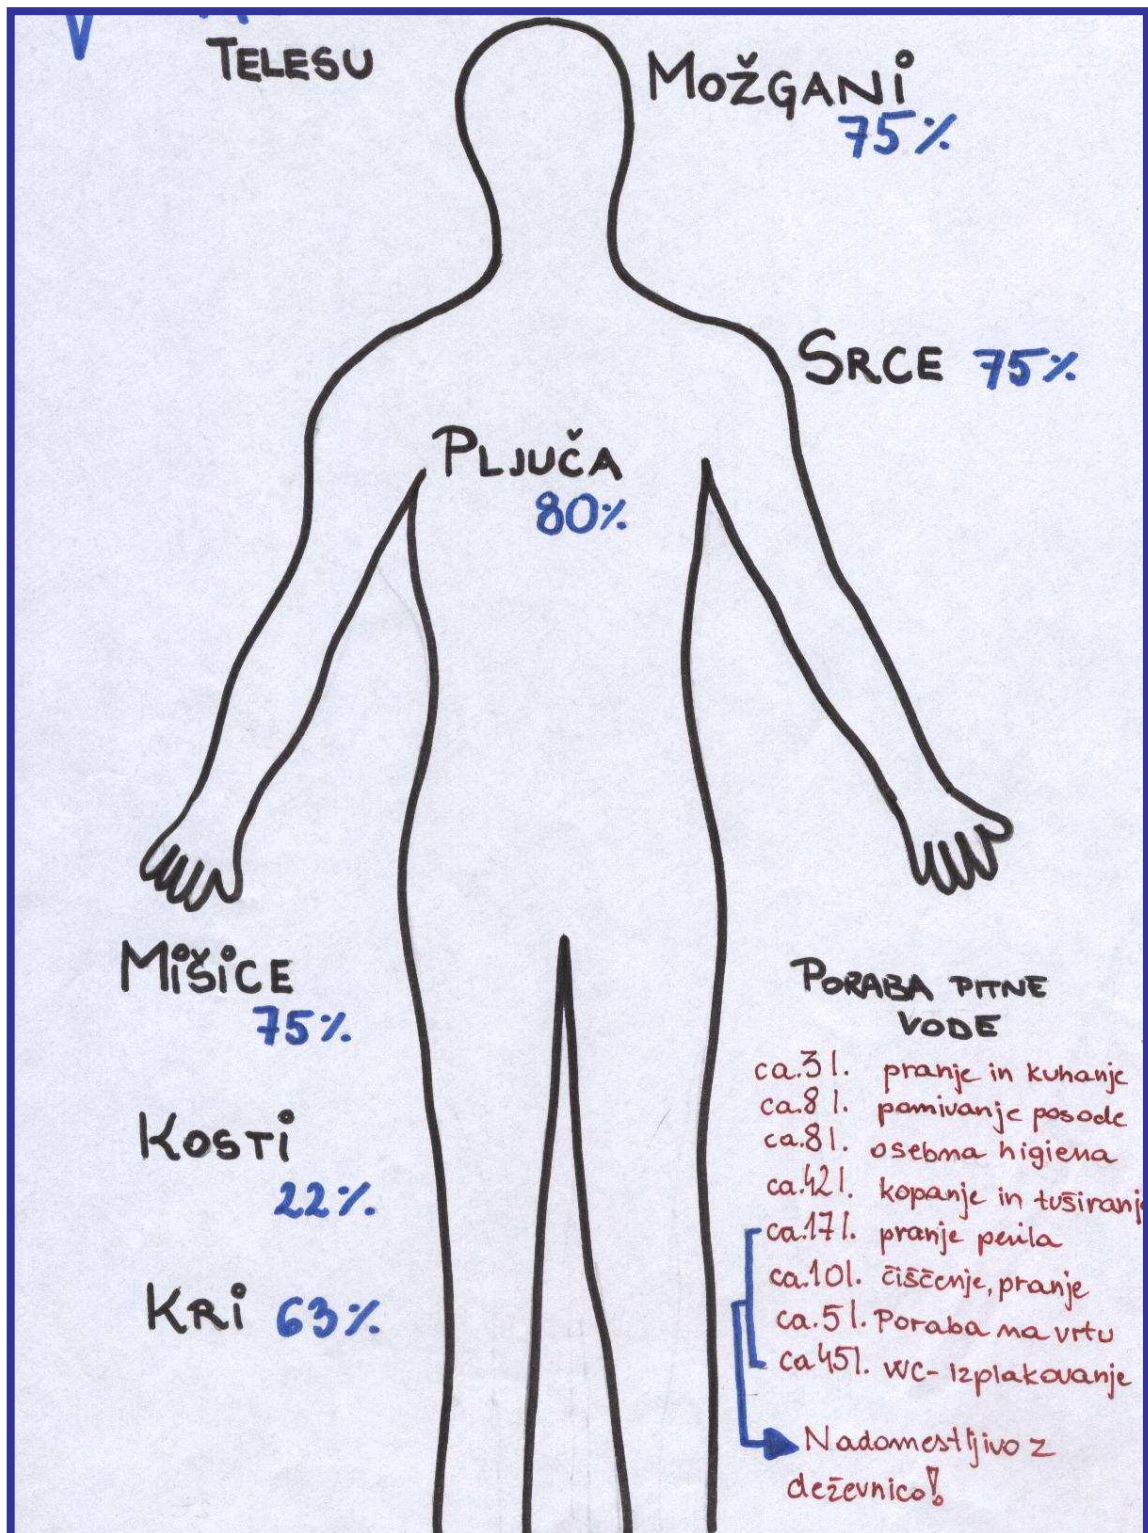 TELESU
MOŽGANI
75%
SRCE 75%
PLJUČA
80%
MIŠICE
75%
KOSTI
22%
KRI 63%
PORABA PITNE
VODE
ca.3 l. pranje in kuhanje
ca.8 l. pomivanje posode
ca.8 l. osebna higiena
ca.42 l. kopanje in tuširanje
ca.17 l. pranje perila
ca.10 l. čiščenje, pranje
ca.5 l. Poraba na vrtu
ca 45 l. WC- Izplakovanje
Nadomestljivo z
deževnico!